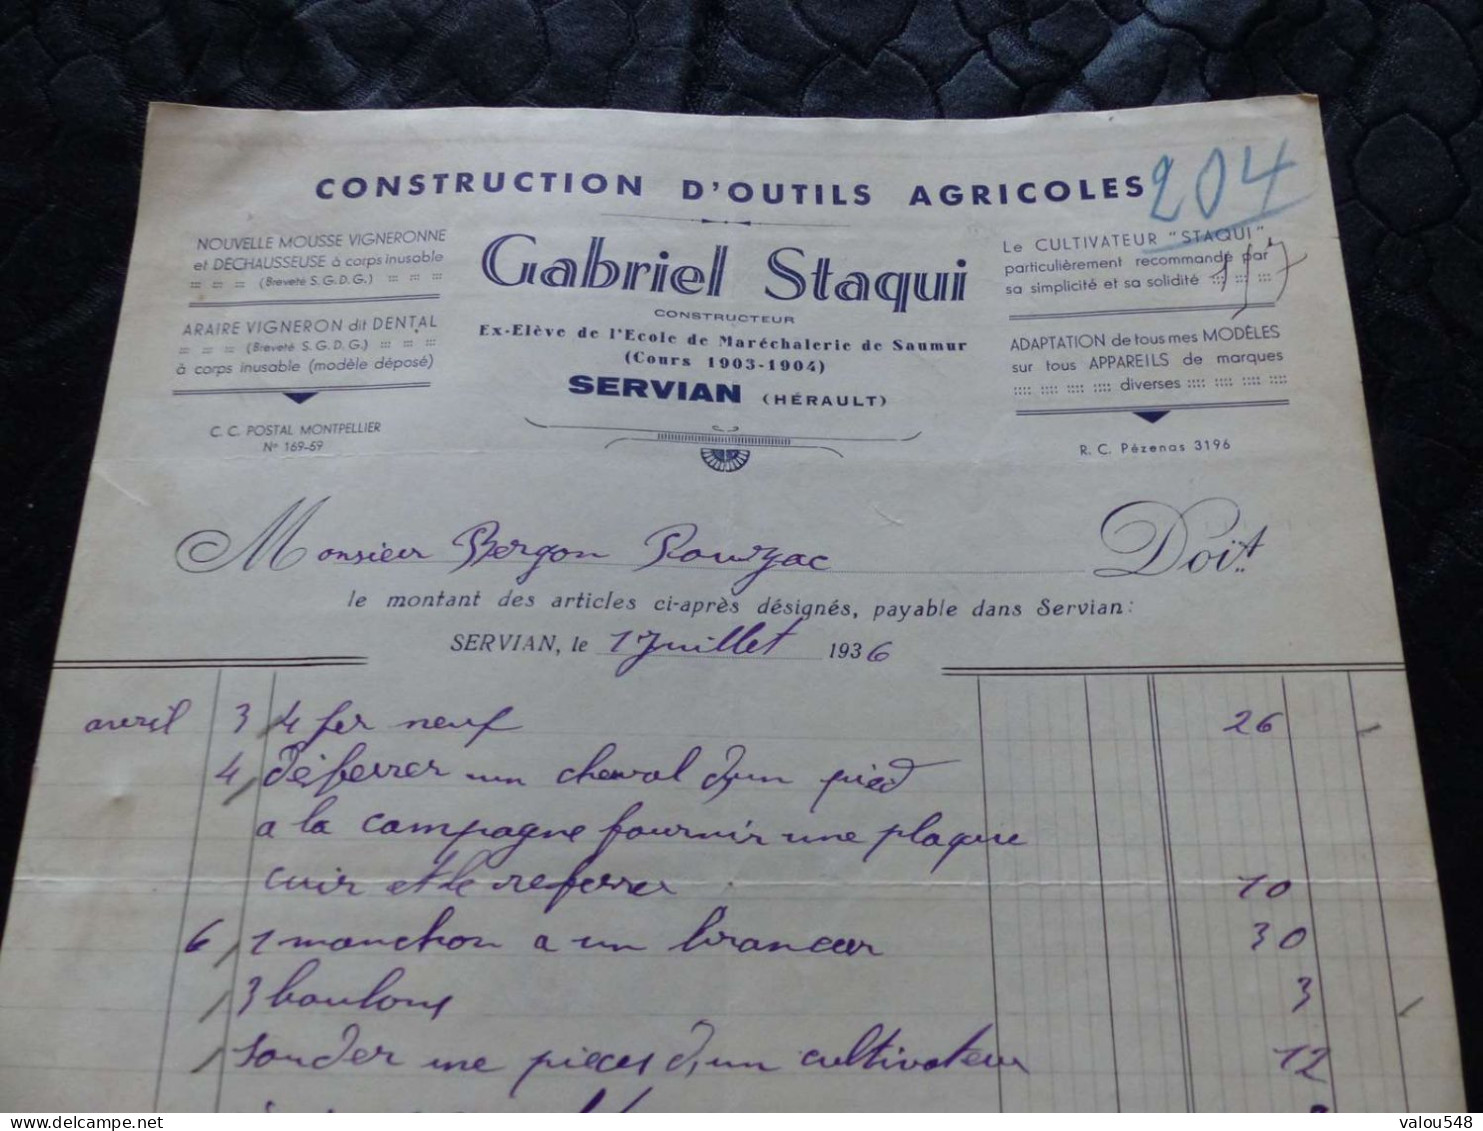 CONSTRUCTION D'OUTILS AGRICOLES
204
NOUVELLE MOUSSE VIGNERONNE
et DÉCHAUSSEUSE à corps inusable
(Breveté S. G. D. G.)
ARAIRE VIGNERON dit DENTAL
(Breveté S. G. D. G.)
à corps inusable (modèle déposé)
C. C. POSTAL MONTPELLIER
N° 169-59
Gabriel Staqui
CONSTRUCTEUR
Ex-Elève de l'Ecole de Maréchalerie de Saumur
(Cours 1903-1904)
SERVIAN (HÉRAULT)
Le CULTIVATEUR "STAQUI",
particulièrement recommandé par
sa simplicité et sa solidité
ADAPTATION de tous mes MODÈLES
sur tous APPAREILS de marques
diverses
R. C. Pézenas 3196
Monsieur Bergon Rouyzac Doit
le montant des articles ci-après désignés, payable dans Servian :
SERVIAN, le 1 Juillet 1936
avril 3 4 fer neuf 26
4 déferrer un cheval d'un pied
a la campagne fournir une plaque
cuir et le referrer 10
6 1 manchon a un 30
3 boulons 3
souder une pieces d'un cultivateur 12
delcampe.net
valou548